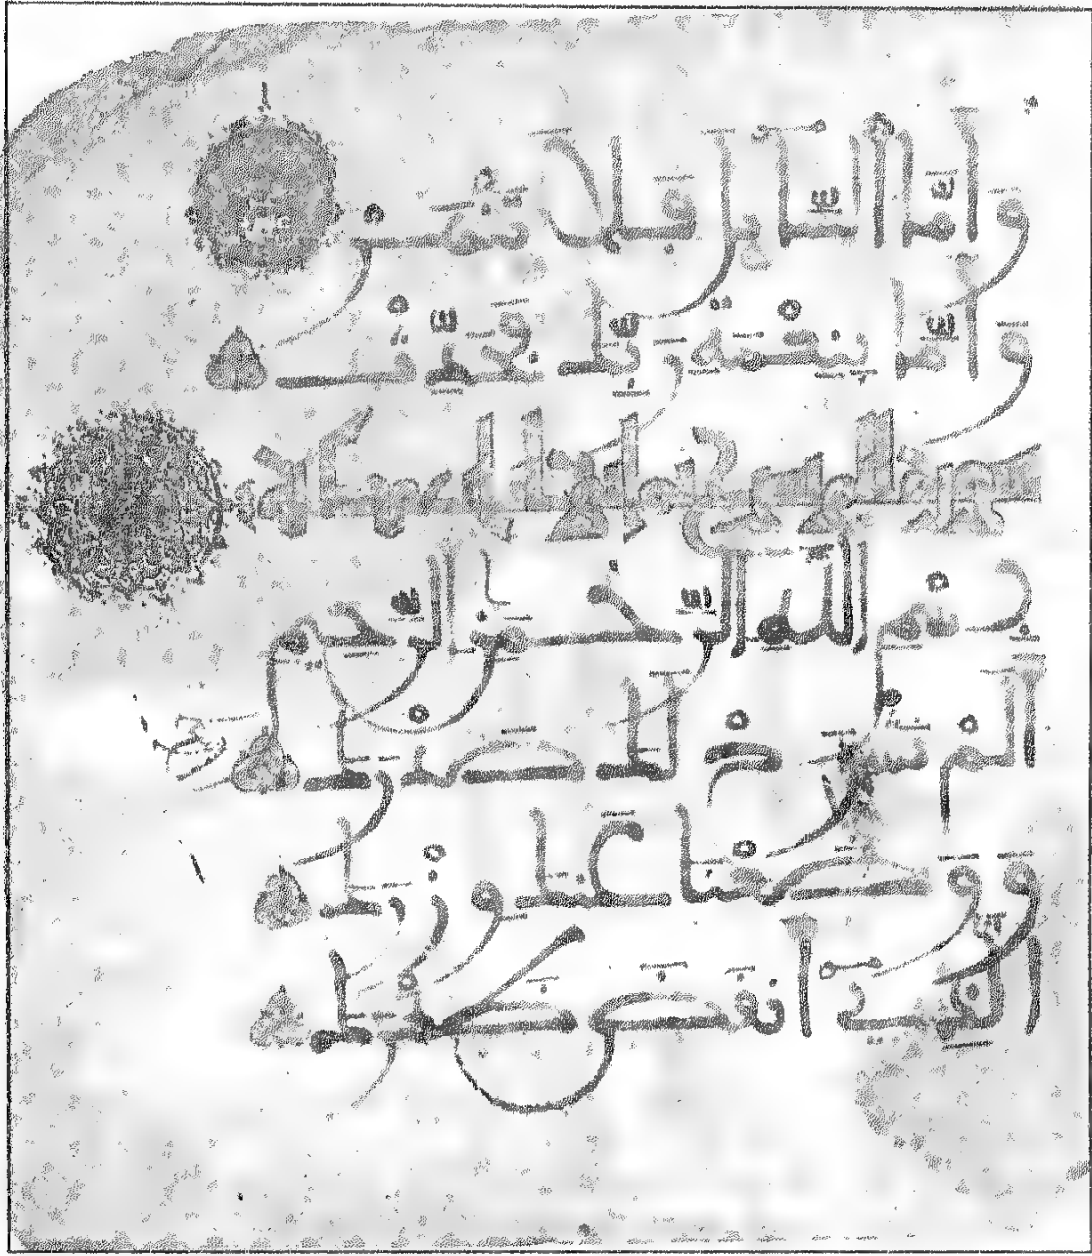 وَأَمَّا السَّائِلَ فَلَا تَنْهَرْ
وَأَمَّا بِنِعْمَةِ رَبِّكَ فَحَدِّثْ
بِسْمِ اللَّهِ الرَّحْمَٰنِ الرَّحِيمِ
أَلَمْ نَشْرَحْ لَكَ صَدْرَكَ
وَوَضَعْنَا عَنْكَ وِزْرَكَ
الَّذِي أَنْقَضَ ظَهْرَكَ